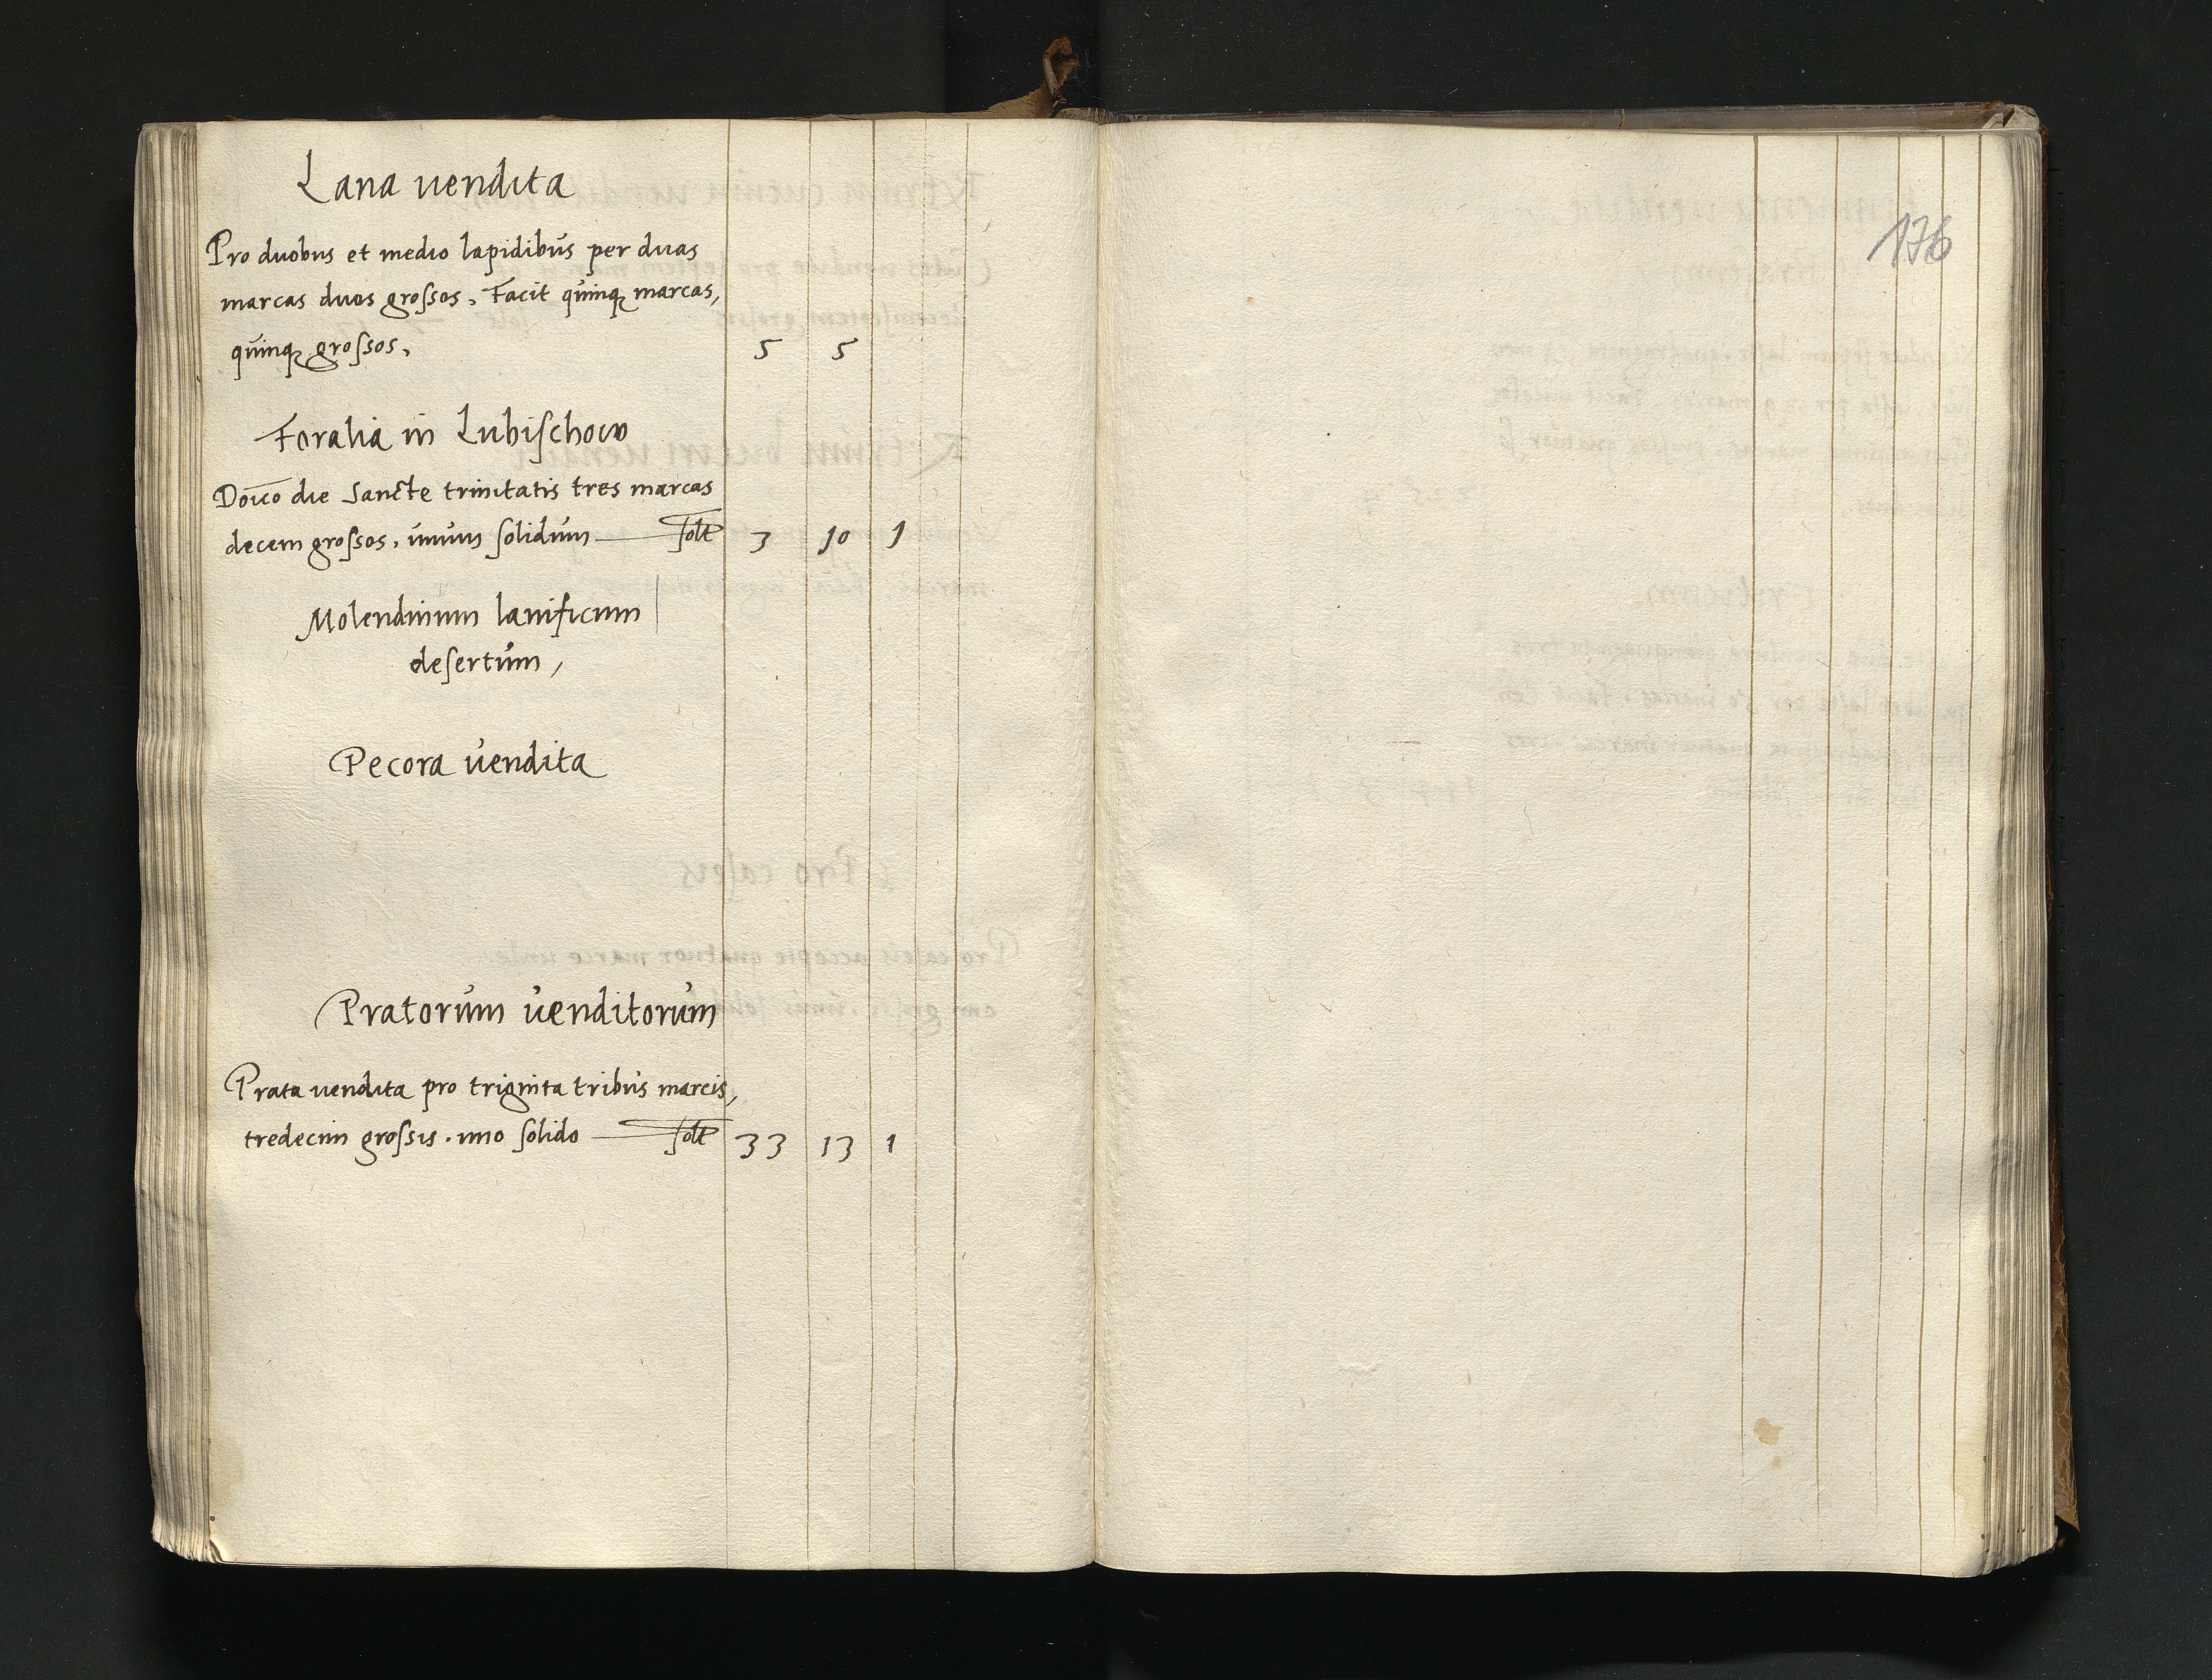 Lana vendita
Pro duobus et medio lapidibus per duas
marcas duos grossos. Facit quinq marcas,
quinq grossos. 5 5
Foralia in Lubischow
Doico die Sancte trinitatis tres marcas
decem grossos. unum solidum solt 3 10 1
Molendinum lanificum
desertum,
Pecora vendita
Pratorum venditorum
Prata vendita pro triginta tribus marcis,
tredecim grossis. uno solido solt 33 13 1
176